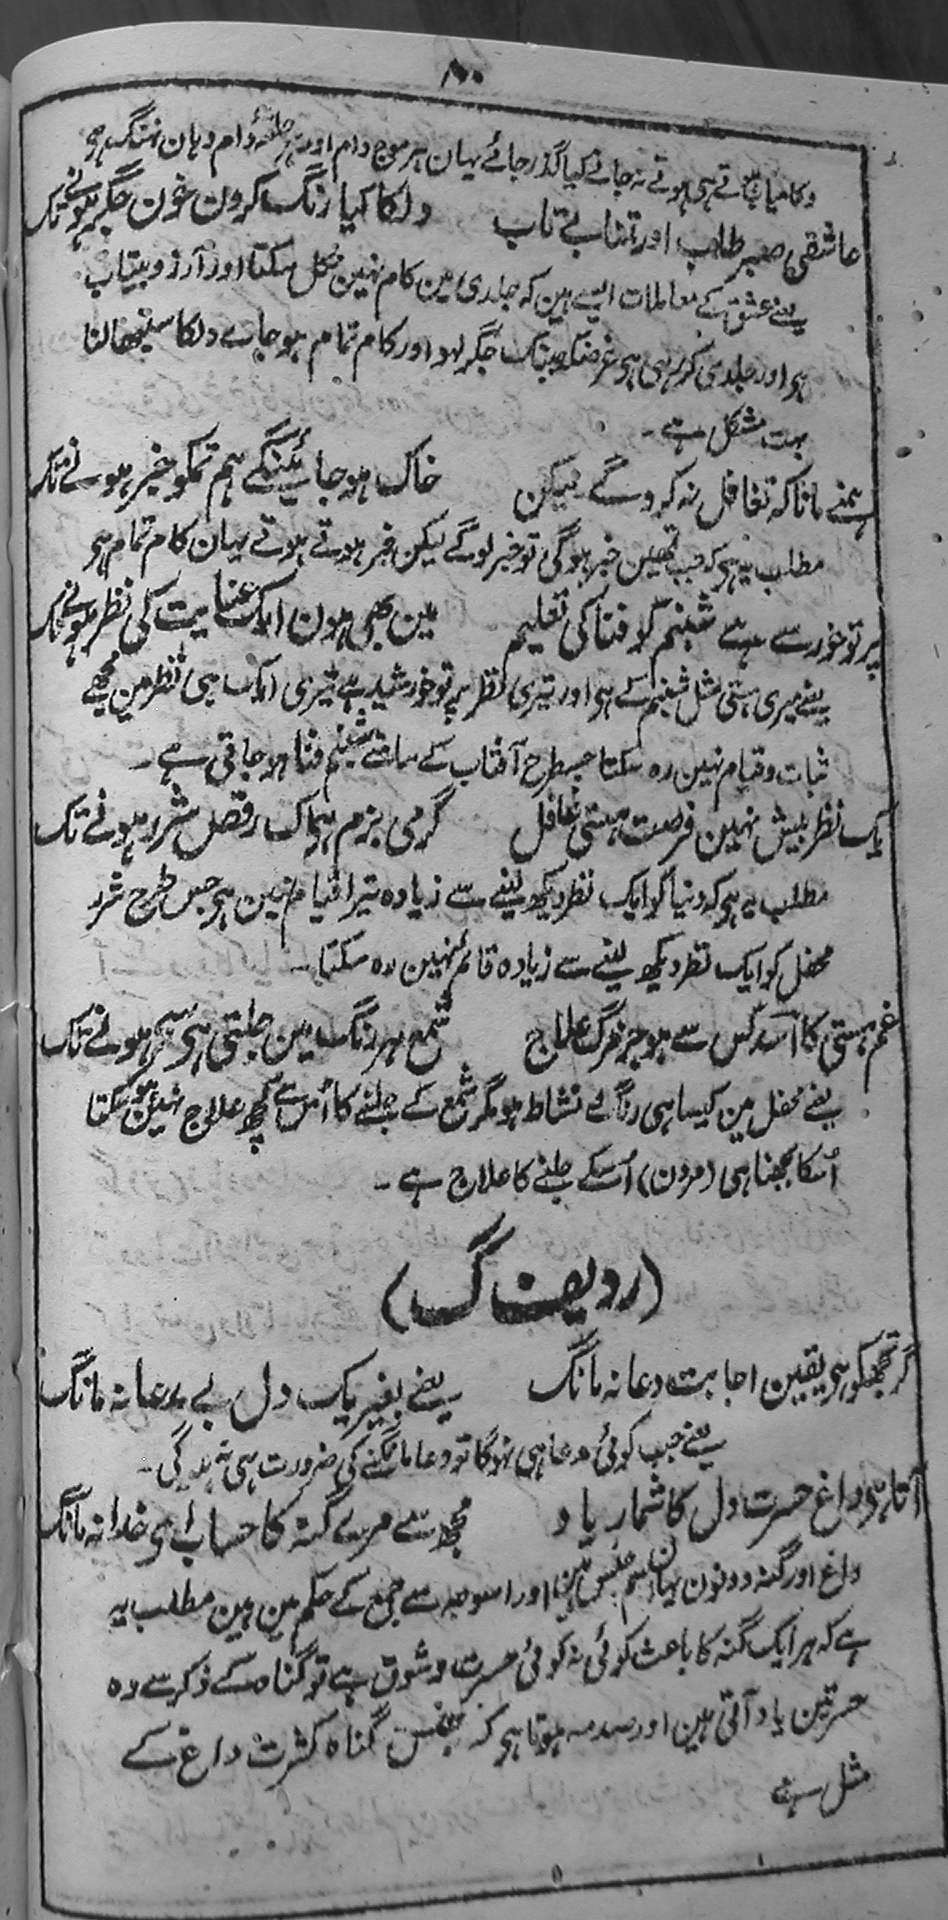 ۸۰
وکامیاب ہوتے ہی ہوتے نہ جانے کیا گذر جائے یہان ہر موج دام اور ہر حلقۂ دام دہان نہنگ ہے
عاشقی صبر طلب اور تمنا بے تاب دلکا کیا رنگ کرون خون جگر ہونے تک
یعنے عشق کے معاملات ایسے ہین کہ جلدی مین کام نہین نکل سکتا اور آرزو بیتاب
ہر اور جلدی کر رہی ہر غرضکہ جبتک جگر لہو اور کام تمام ہو جاے دلکا سنبھالنا
بہت مشکل ہے۔
ہمنے مانا کہ تغافل نہ کروگے لیکن خاک ہو جائینگے ہم تمکو خبر ہونے تک
مطلب یہ ہر کہ جب تمھین خبر ہوگی تو خبر لوگے لیکن خبر ہوتے ہوتے یہان کام تمام ہر
پرتو خور سے ہے شبنم کو فنا کی تعلیم مین بھی ہون ایک عنایت کی نظر ہونے تک
یعنے میری ہستی مثل شبنم کے ہر اور تیری نظر پرتو خورشید ہے تیری ایک ہی نظر مین مجھے
ثبات و قیام نہین رہ سکتا جسطرح آفتاب کے سامنے شبنم فنا ہو جاتی ہے۔
یک نظر بیش نہین فرصت ہستی غافل گرمی بزم ہر اک رقص شرر ہونے تک
مطلب یہ ہر کہ دنیا کو ایک نظر دیکھ لینے سے زیادہ تیرا قیام نہین ہر جس طرح شرر
محفل کو ایک نظر دیکھ لینے سے زیادہ قائم نہین رہ سکتا۔
غم ہستی کا اسد کس سے ہو جز مرگ علاج شمع ہر رنگ مین جلتی ہر سحر ہونے تک
یعنے محفل مین کیسا ہی رنگ نشاط ہو مگر شمع کے جلنے کا اُس سے کچھ علاج نہین ہو سکتا
اُسکا بجھنا ہی (مردن) اُسکے جلنے کا علاج ہے۔
(ردیف گ)
گر تجھکو ہر یقین اجابت دعا نہ مانگ یعنے بغیر یک دل بے مدعا نہ مانگ
یعنے جب کوئی مدعا ہی نہوگا تو دعا مانگنے کی ضرورت ہی نہ رہے گی۔
آتا ہر داغ حسرت دل کا شمار یاد مجھ سے مرے گنہ کا حساب ای خدا نہ مانگ
داغ اور گنہ دونون یہان اسم جنس ہین اور اسوجہ سے جمع کے حکم مین ہین مطلب یہ
ہے کہ ہر ایک گنہ کا باعث کوئی نہ کوئی حسرت و شوق ہے تو گناہ کے ذکر سے وہ
حسرتین یاد آتی ہین اور صدمہ ہوتا ہر کہ جنس گناہ کثرت داغ کے
مثل ہے